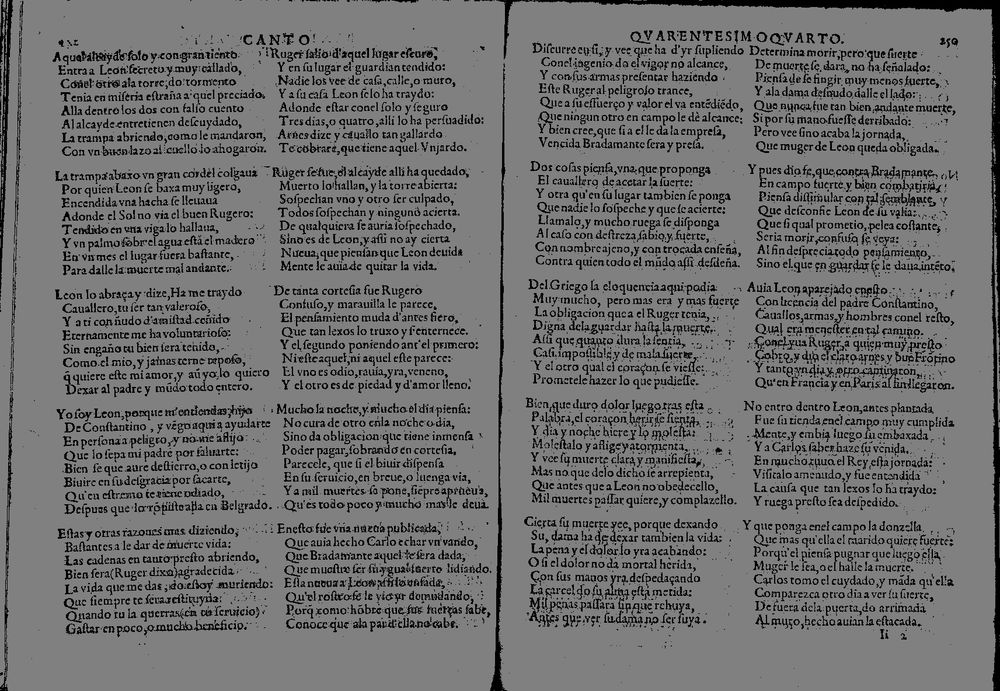 CANTO
Aquel alcayde solo y con gran tiento
Entra a Leon secreto y muy callado,
Con el otro ala torre, do tormento
Tenia en miseria estraña aquel preciado.
Alla dentro los dos con falso cuento
Al alcayde entretienen descuydado,
La trampa abriendo, como le mandaron,
Con vn buen lazo al cuello lo ahogaron.
La trampa abaxo vn gran cordel colgaua
Por quien Leon se baxa muy ligero,
Encendida vna hacha se lleuaua
Adonde el Sol no via el buen Rugero:
Tendido en vna viga lo hallaua,
Y vn palmo sobre l agua está el madero
En vn mes el lugar fuera bastante,
Para dalle la muerte mal andante.
Leon lo abraça y dize, Ha me traydo
Cauallero, tu ser tan valeroso,
Y a ti con ñudo d'amistad ceñido
Eternamente me ha voluntarioso:
Sin engaño tu bien sera tenido,
Como el mio, y jamas terne reposo,
q̃ quiere este mi amor, y aũ yo lo quiero
Dexar al padre y mũdo todo entero.
Yo soy Leon, porque m'entiendas, hijo
De Constantino, y vẽgo aqui a ayudarte
En persona a peligro, y no me aflijo
Que lo sepa mi padre por saluarte:
Bien se que aure destierro, o con letijo
Biuire en su desgracia por sacarte,
Qu'en estremo te tiene odiado,
Despues que lo rõpiste alla en Belgrado.
Estas y otras razones mas diziendo,
Bastantes a le dar de muerte vida:
Las cadenas en tanto presto abriendo,
Bien sera (Ruger dixo) agradecida
La vida que me das, do estoy muriendo:
Que siempre te sera restituyda:
Quando tu la querras (en tu seruicio)
Gastar en poco, o mucho beneficio.
Ruger salio d'aquel lugar escuro,
Y en su lugar el guardian tendido:
Nadie los vee de casa, calle, o muro,
Y a su casa Leon se lo ha traydo:
Adonde estar con el solo y seguro
Tres dias, o quatro, alli lo ha persuadido:
Armes dize y cauallo tan gallardo
Te cobrare, que tiene aquel Vnjardo.
Ruger se fue, el alcayde alli ha quedado,
Muerto lo hallan, y la torre abierta:
Sospechan vno y otro ser culpado,
Todos sospechan y ninguno acierta.
De qualquiera se auria sospechado,
Sino es de Leon, y assi no ay cierta
Nueua, que piensan que Leon deuida
Mente le auia de quitar la vida.
De tanta cortesia fue Rugero
Confuso, y marauilla le parece,
El pensamiento muda d'antes fiero,
Que tan lexos lo truxo y s'enternece.
Y el segundo poniendo ant'el primero:
Ni este aquel, ni aquel este parece:
El vno es odio, rauia, yra, veneno,
Y el otro es de piedad y d'amor lleno.
Mucho la noche, y mucho el dia piensa:
No cura de otro en la noche o dia,
Sino da obligacion que tiene inmensa
Poder pagar, sobrando en cortesia,
Parecele, que si el biuir dispensa
En su seruicio, en breue, o luenga via,
Y a mil muertes se pone, siẽpre aprueua,
Qu'es todo poco y mucho mas le deua.
En esto fue vna nueua publicada,
Que auia hecho Carlo echar vn vando,
Que Bradamante aquel le sera dada,
Que muestre ser su ygual cierto lidiando.
Esta nueua a Leon
Qu'el rostro se le vio yr demudando,
Porq̃ como hõbre que sus fuerças sabe,
Conoce que ala par d'ella no cabe.
QVARENTESIMOQVARTO.
250
Discurre en si, y vee que ha d'yr supliendo
Con el ingenio do el vigor no alcance,
Y con sus armas presentar haziendo
Este Ruger al peligroso trance,
Que a su esfuerço y valor el va entẽdiẽdo,
Que ningun otro en campo le dè alcance:
Y bien cree, que si a el le da la empresa,
Vencida Bradamante sera y presa.
Dos cosas piensa, vna, que proponga
El cauallero de acetar la suerte:
Y otra qu'en su lugar tambien se ponga
Que nadie lo sospeche y que se acierte:
Llamalo, y mucho ruega se disponga
Al caso con destreza, sabio, y fuerte,
Con nombre ajeno, y con trocada enseña,
Contra quien todo el mũdo assi desdeña.
Del Griego la eloquencia aqui podia
Muy mucho, pero mas era y mas fuerte
La obligacion que a el Ruger tenia,
Digna dela guardar hasta la muerte,
Assi que quanto dura la sentia,
Casi impossible y de mala suerte,
Y el otro qual el coraçon se viesse:
Prometele hazer lo que pudiesse.
Bien, que duro dolor luego tras esta
Palabra, el coraçon herir se sienta,
Y dia y noche hiere y lo molesta:
Molestalo y aflige y atormenta,
Y vee su muerte clara y manifiesta,
Mas no que delo dicho se arrepienta,
Que antes que a Leon no obedecello,
Mil muertes passar quiere, y complazello.
Cierta su muerte vee, porque dexando
Su dama ha de dexar tambien la vida:
La pena y el dolor lo yra acabando:
O si el dolor no da mortal herida,
Con sus manos yra despedaçando
La carcel do su alma está metida:
Mil penas passara sin que rehuya,
Antes que ver su dama no ser suya.
Determina morir, pero que suerte
De muerte se dara, no ha señalado:
Piensa de se fingir muy menos fuerte,
Y ala dama desnudo dalle el lado:
Que nunca fue tan bien andante muerte,
Si por su mano fuesse derribado:
Pero vee sino acaba la jornada,
Que muger de Leon queda obligada.
Y pues dio fe, que contra Bradamante
En campo fuerte y bien combatiria,
Piensa dissimular con tal semblante,
Que desconfie Leon de su valia:
Que si qual prometio, pelea costante,
Seria morir, confuso se veya:
Al fin desprecia todo pensamiento,
Sino el que en guardar se le daua intẽto.
Auia Leon aparejado en esto
Con licencia del padre Constantino,
Cauallos, armas, y hombres con el resto,
Qual era menester en tal camino.
Con el yua Ruger, a quien muy presto
Cobro, y dio el claro arnes y buẽ Frõtino
Y tanto vn dia y otro caminaron,
Qu'en Francia y en Paris al fin llegaron.
No entro dentro Leon, antes plantada
Fue su tienda en el campo muy cumplida
Mente, y embia luego su embaxada
Y a Carlos saber haze su venida.
En mucho tuuo el Rey, esta jornada:
Visitalo amenudo, y fue entendida
La causa que tan lexos lo ha traydo:
Y ruega presto sea despedido.
Y que ponga en el campo la donzella
Que mas qu'ella el marido quiere fuerte:
Porqu'el piensa pugnar que luego ella
Muger le sea, o el halle la muerte.
Carlos tomo el cuydado, y mãda qu'ella
Comparezca otro dia a ver su suerte,
De fuera dela puerta, do arrimada
Al muro, hecho auian la estacada.
Ii 2